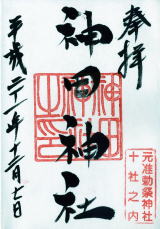 奉拝
元准勅祭神社
十社之内
神田神社
平成二十一年十二月七日